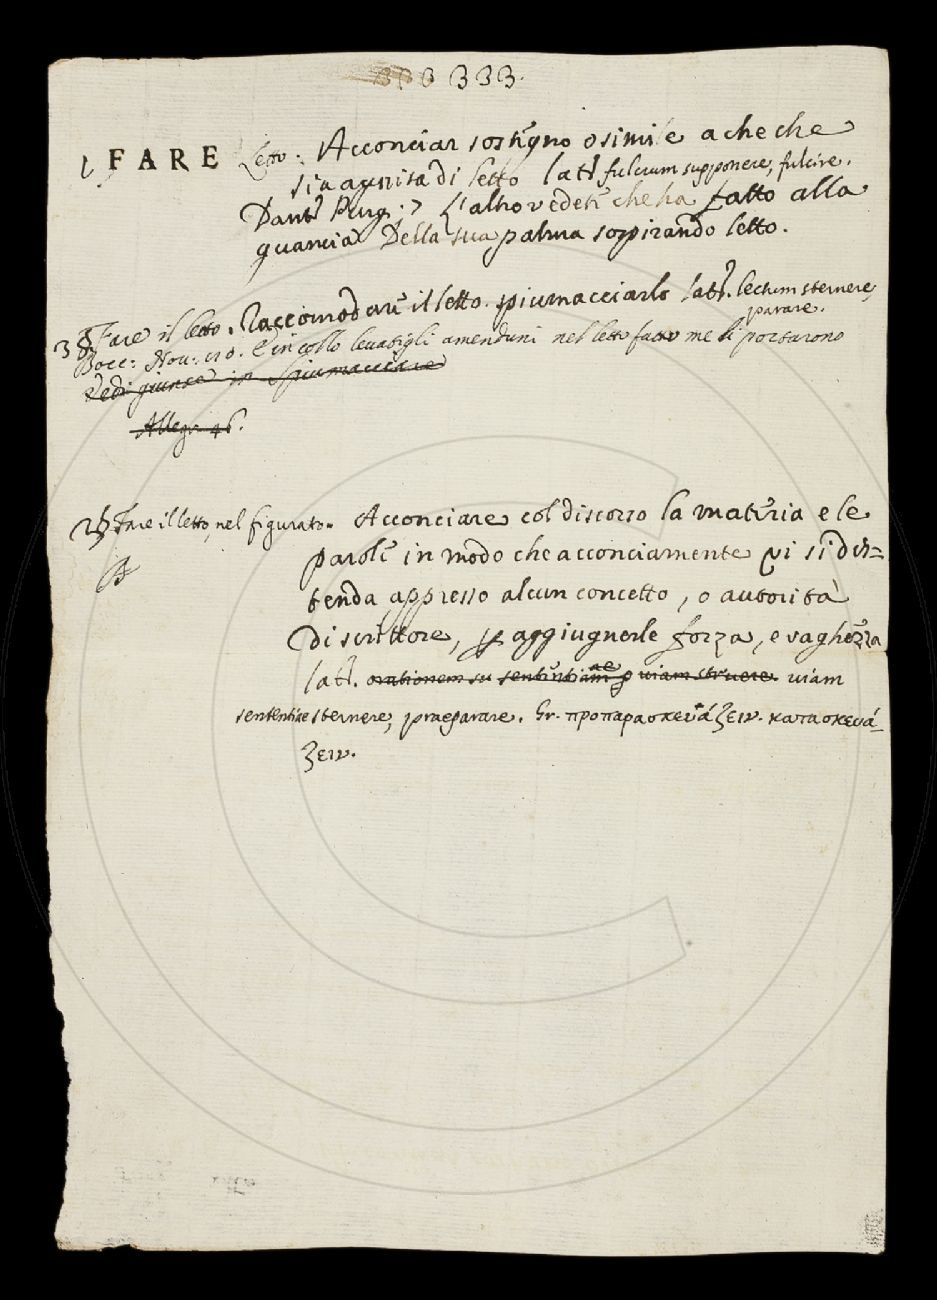 333.
FARE Letto: Acconciar sostegno o simile a che che
sia a guisa di letto lat. fulcrum supponere, fulcire.
Dant. Purg. 7 L'altro vedete che ha fatto alla
guancia Della sua palma sospirando letto.
3 § Fare il letto. Raccomodare il letto. spiumacciarlo lat. lectum sternere,
parare.
Bocc: Nov: E in collo levatigli amenduni nel letto fatto me li portarono
Vedi giunte in Spiumacciare
Allegr. 46.
2 § Fare il letto, nel figurato. Acconciare col discorso la materia e le
parole in modo che acconciamente vi si dis=
tenda appresso alcun concetto, o autorità
di scrittore, p aggiugnerle forza, e vaghezza
lat. orationem su sententiam viam struere. viam
sententiae sternere, praeparare. Gr. προπαρασκευάζειν. κατασκευά-
ζειν.